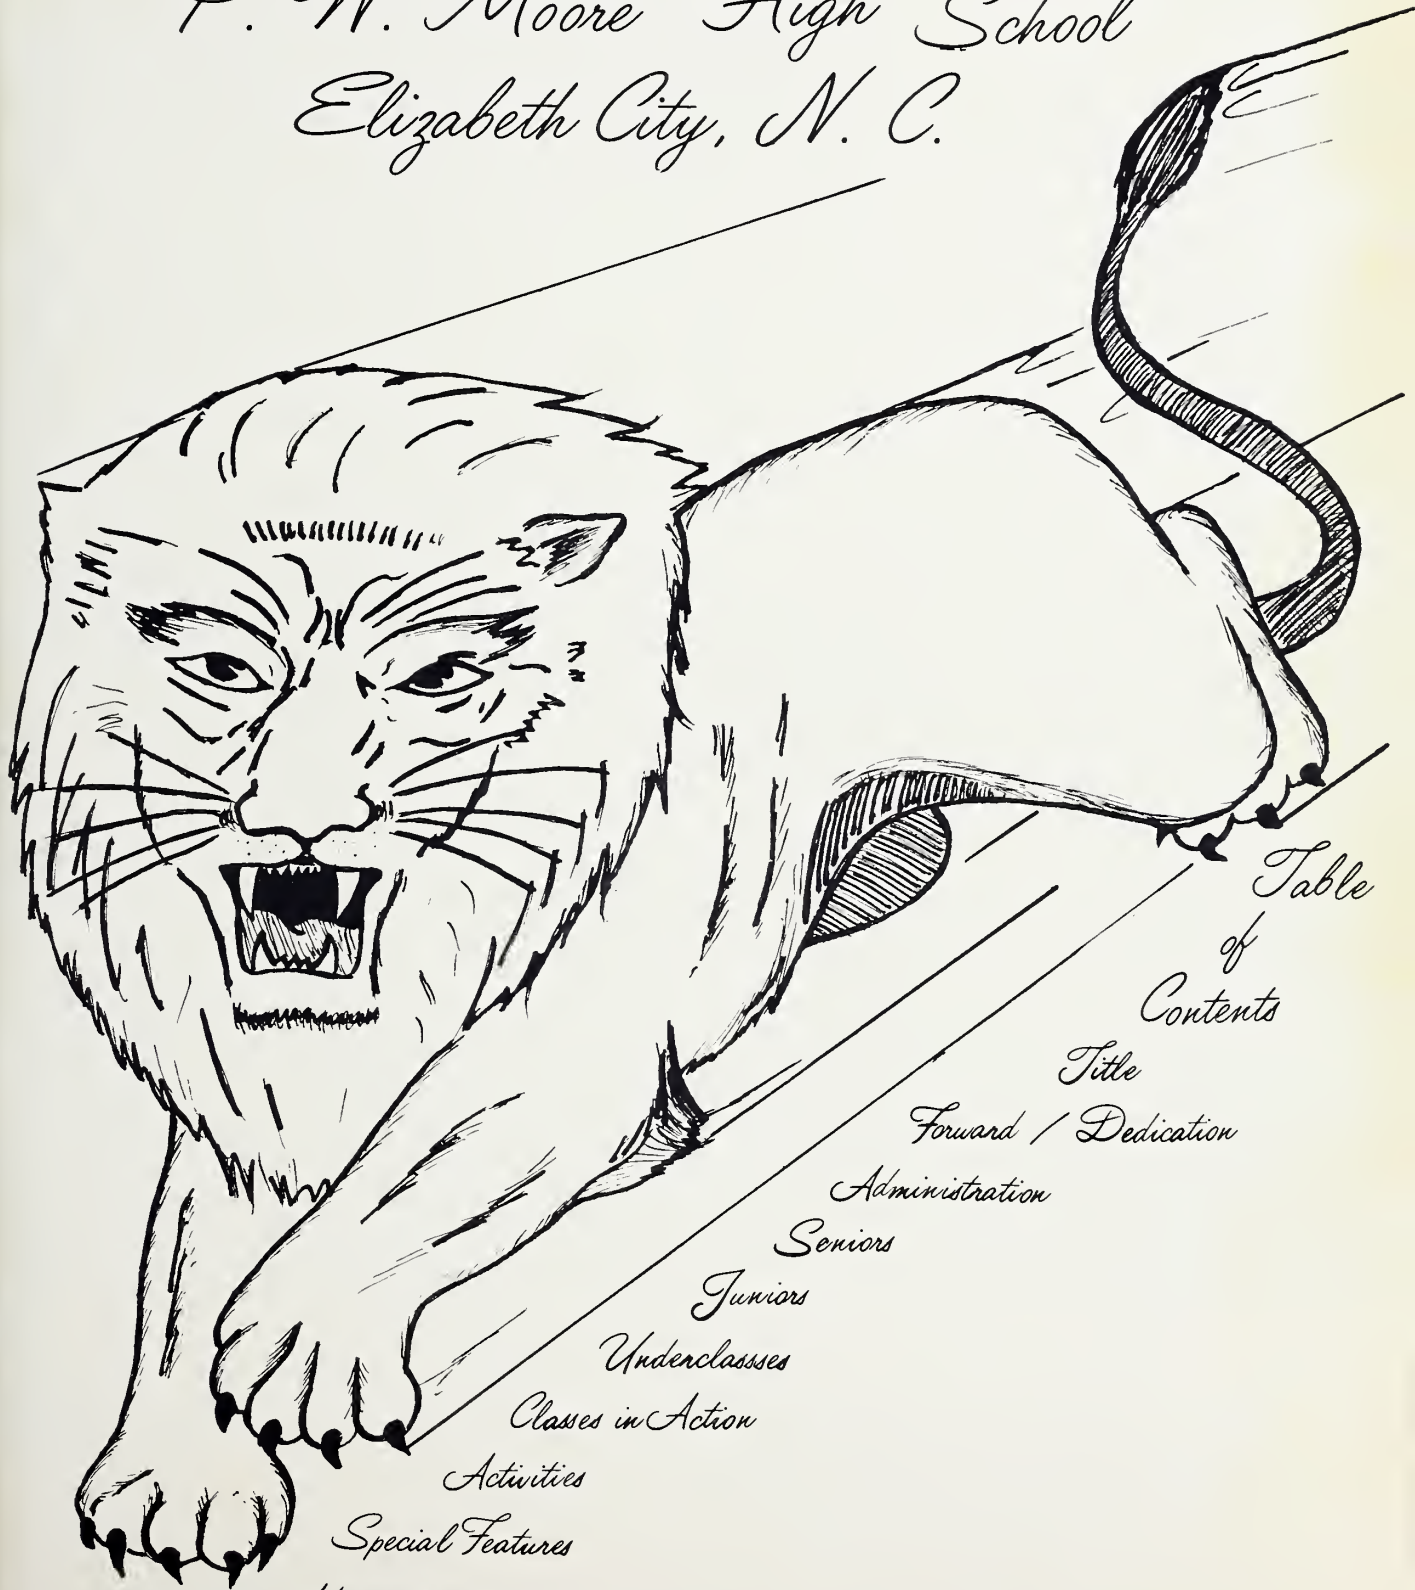 P. W. Moore High School
Elizabeth City, N. C.
Table
of
Contents
Title
Forward / Dedication
Administration
Seniors
Juniors
Underclassses
Classes in Action
Activities
Special Features